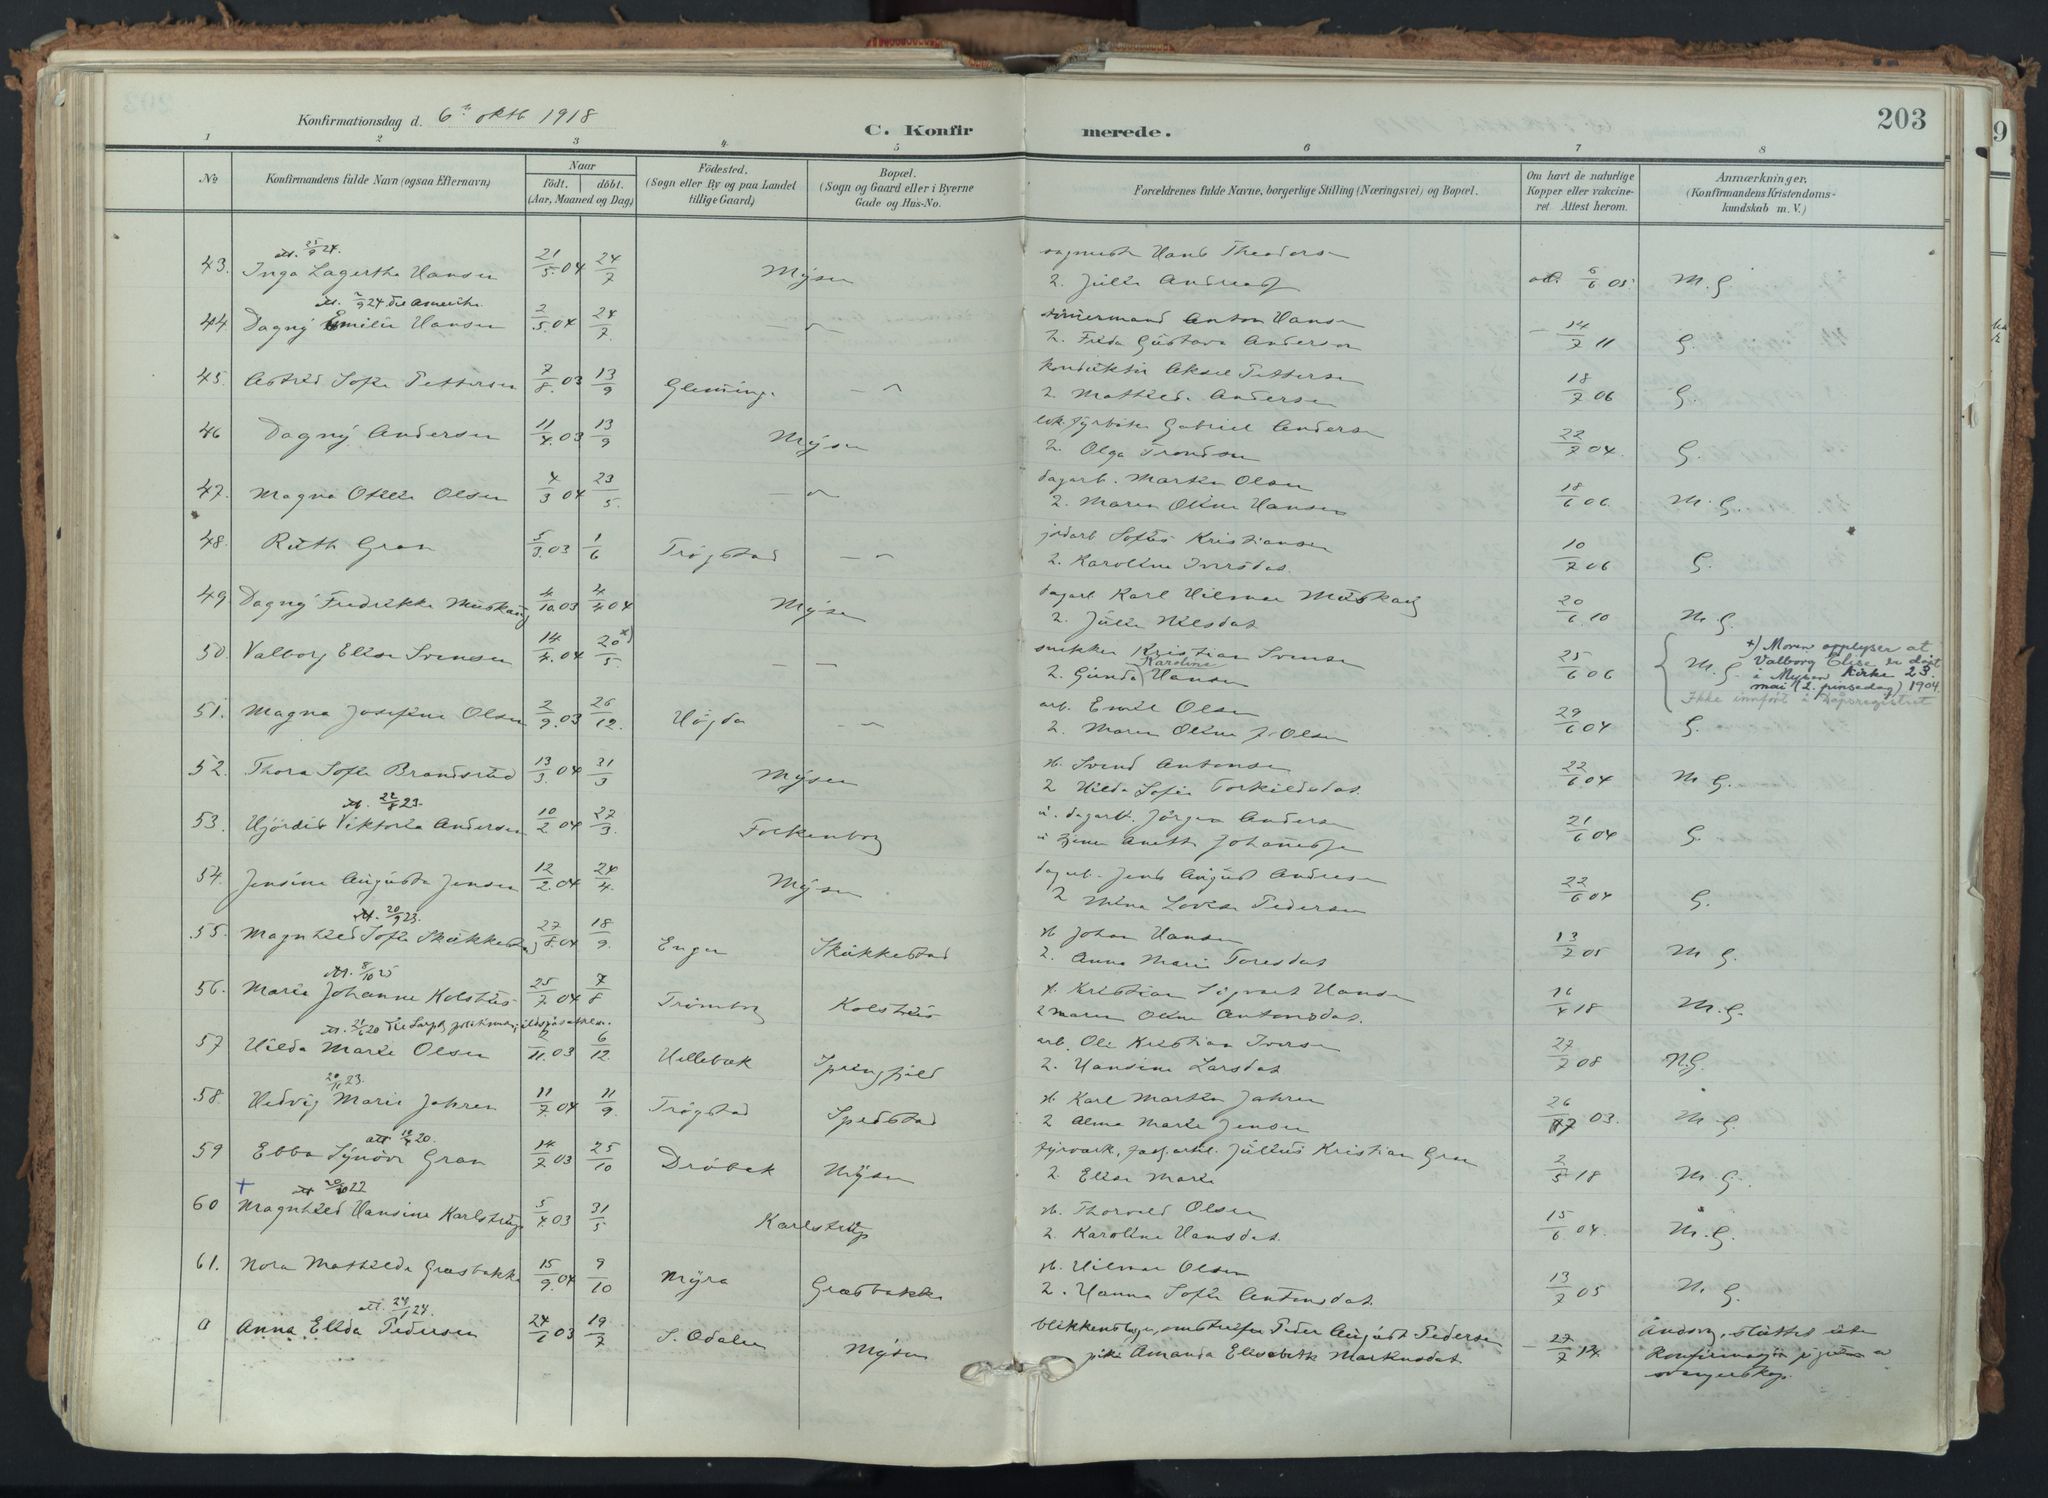 203
Konfirmationsdag d. 6te oktb 1918
C. Konfirmerede.
1 2 3 4 5 6 7 8
No
Konfirmandens fulde Navn (ogsaa Efternavn)
Naar
födt. döbt.
(Aar, Maaned og Dag)
Födested.
(Sogn eller By og paa Landet
tillige Gaard)
Bopæl.
(Sogn og Gaard eller i Byerne
Gade og Hus-No.
Forældrenes fulde Navne, borgerlige Stilling (Næringsvei) og Bopæl.
Om havt de naturlige
Kopper eller vakcine-
ret. Attest herom.
Anmærkninger.
(Konfirmandens Kristendoms-
kundskab m. V.)
att. 25/9 24.
43. Inga Lagertha Hansen 21/5.04 24/7 Mysen Hans Theodorsen 2. Julie 6/6 05. M.G.
att. 2/9 24 til Amerika.
44. Dagny Emilie Hansen 2/5.04 24/7. tømmermand Anton Hansen 2. Gustava Anderson 14/7 11 G.
45. Astrid Sofie Pettersen 7/8.03 13/9 Glemminge konduktør Aksel Pettersen 2. Mathild. Andersen 18/7 06 G.
46 Dagny Andersen 11/4.03 13/9 Mysen lok. fyrbøter Gabriel Andersen 2. Olga Trondsen 22/7 04. G.
47. Magna Otilie Olsen 4/3 04 23/5. dagarb. Martin Olsen 2. Maren Oline Hansen 18/6 06. M.G.
48. Ruth Gran 5/3.03 1/6 Trøgstad jordarb Sofus Kristiansen 2. Karoline Iversdat. 10/7 06 G.
49. Dagny Fredrikke Muskaug 4/10.03 4/4 04 Mysen dagarb Karl Hilmar Muskaug 2. Julie Nilsdat 20/6.10 M.G.
50. Valborg Elise Svensen 14/4.04 20/5. x) snikker Kristian Svensen 2. Gunda Karoline Hansen 25/6 06 M.G.
+) Moren opplyser at
Valborg Elise er døpt
i Mysen Kirke 23.
mai (2. pinsedag) 1904.
Ikke innført i Dåpsregistret
51. Magna Josefine Olsen 2/9.03 26/12. Høgda arb. Emil Olsen 2. Maren Oline J. Olsen 29/6 04 G.
52. Thora Sofie Brandsrud 13/3.04 31/3 Mysen Svend Antonsen 2 Hilda Sofie Torkildsdat. 22/6 04. M.G.
att. 22/8 23.
53. Hjørdis Viktoria Andersen 10/2 04 27/3. Folkenborg u. dagarb. Jörgen Andersen 21/6 04 G.
54. Jensine Augusta Jensen 12/2.04 24/4. Mysen dagarb. Jens August Andresen 2 Mina Lovise Pedersen 22/6 04 G.
att. 20/9 23.
55. Magnhild Sofie Skukkestad 27/8.04 18/9. Enger Skukkestad Johan Hansen 2. Anna Marie Toresdat 13/7 05 M.G.
att. 8/10 25
56. Marie Johanne Kolshus 25/7 04 7/8 Trømborg Kolshus Kristian Sigvart Hansen 2 Maren Oline Antonsdat. 16/4 18 M.G.
57 Hilda Marie Olsen 2/11.03 6/12. Hillebæk Springfjeld arb. Ole Kristian Iversen 2. Hansine Larsdat 27/7 08 N.G.
20/11 23.
58. Hedvig Marie Jahren 11/7 04 11/9. Trøgstad Spedstad Karl Martin Jahren 2 Alma Marie Jensen 26/7 03. M.G.
att 20.
59 Ebba Synøve Gran 14/7 03 25/10 Drøbak Mysen fyrværk. Julius Kristian Gran 2. Elise Marie 2/5 18 M.G.
+ att 22
60 Magnhild Hansine Karlstrup 5/4.03 31/5 Karlstrup Thorvald Olsen 2. Karoline Hansdat. 15/6 04. M.G.
61. Nora Mathilde Græsbakke 15/9.04 9/10 Myra Græsbakke Hilmar Olsen 2. Hanna Sofie Antonsdat. 13/7 05 M.G.
att. 24/1 24.
0 Anna Elida Pedersen 24/6 03 19/7 S. Odalen Mysen blikkenslager, omstreifer Peder August Pedersen pike Amanda Elisabeth Markusdat 27/7 14 Åndsvg, sluttet uten
Konfirmasjon